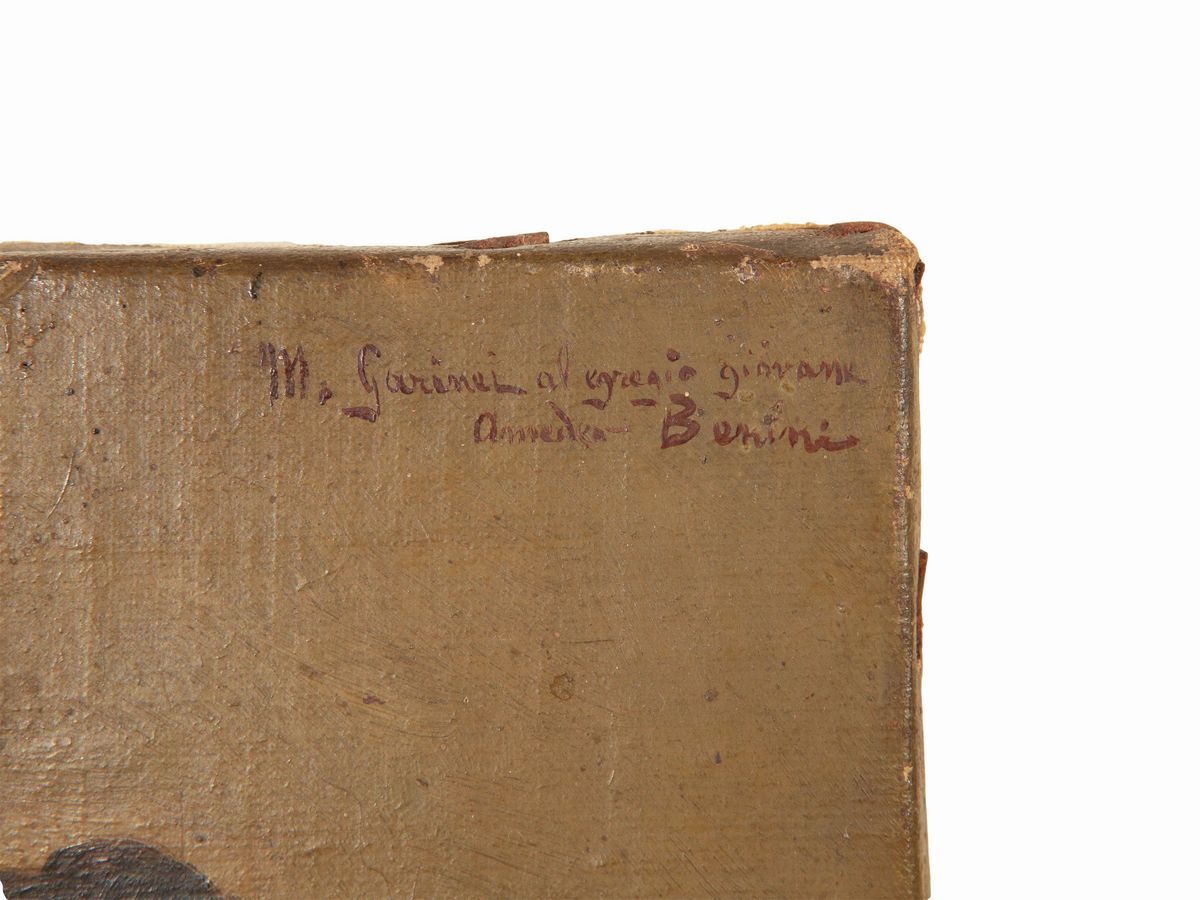 M. Garinei al egregio giovane
Amedeo Benini